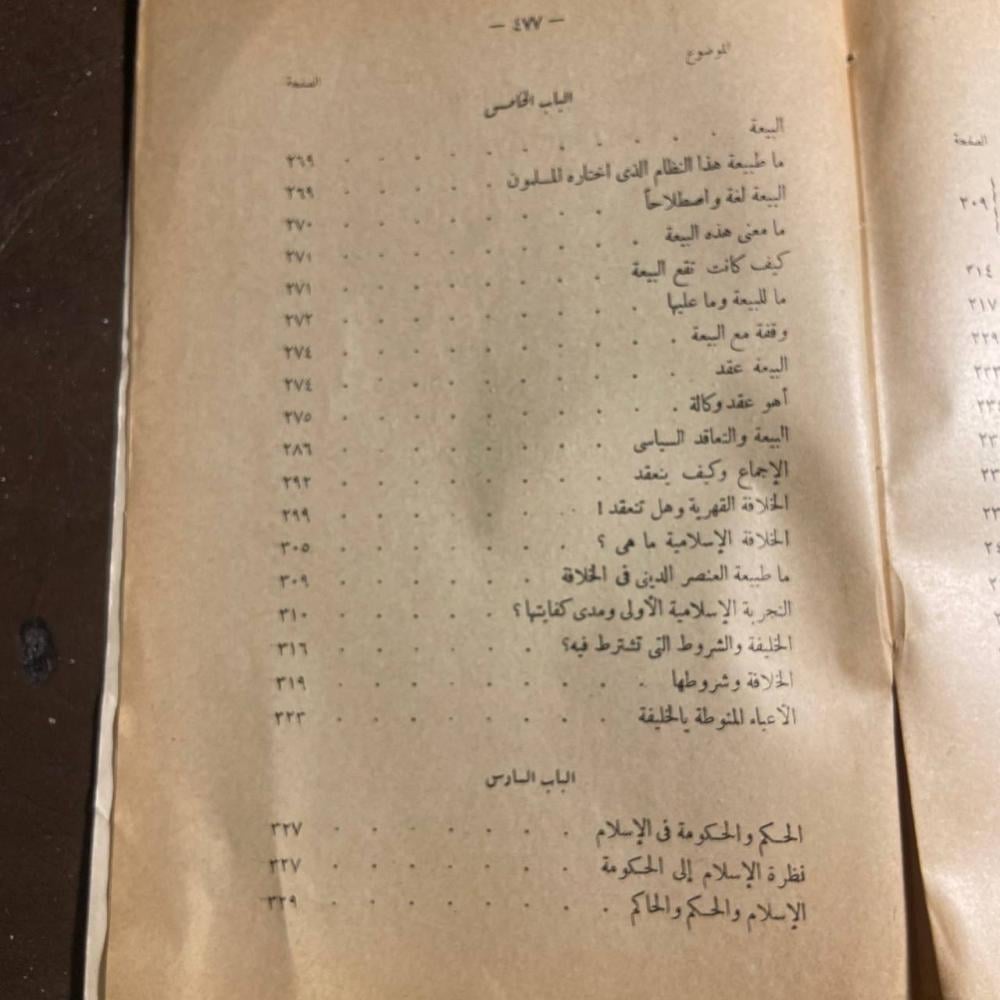 — ٤٧٧ —
الموضوع الصفحة
الباب الخامس
البيعة ٢٦٩
ما طبيعة هذا النظام الذى اختاره المسلمون ٢٦٩
البيعة لغة واصطلاحاً ٢٧٠
ما معنى هذه البيعة ٢٧١
كيف كانت تقع البيعة ٢٧١
ما للبيعة وما عليها ٢٧٢
وقفة مع البيعة ٢٧٤
البيعة عقد ٢٧٤
أهو عقد وكالة ٢٧٥
البيعة والتعاقد السياسى ٢٨٦
الإجماع وكيف ينعقد ٢٩٢
الخلافة القهرية وهل تنعقد ! ٢٩٩
الخلافة الإسلامية ما هى ؟ ٣٠٥
ما طبيعة العنصر الدينى فى الخلافة ٣٠٩
التجربة الإسلامية الأولى ومدى كفايتها ؟ ٣١٠
الخليفة والشروط التى تشترط فيه؟ ٣١٦
الخلافة وشروطها ٣١٩
الأعباء المنوطة بالخليفة ٣٢٣
الباب السادس
الحكم والحكومة فى الإسلام ٣٢٧
نظرة الإسلام إلى الحكومة ٣٢٧
الإسلام والحكم والحاكم ٣٢٩
الصفحة
٢٠٩
٢١٤
٢١٧
٢٢٩